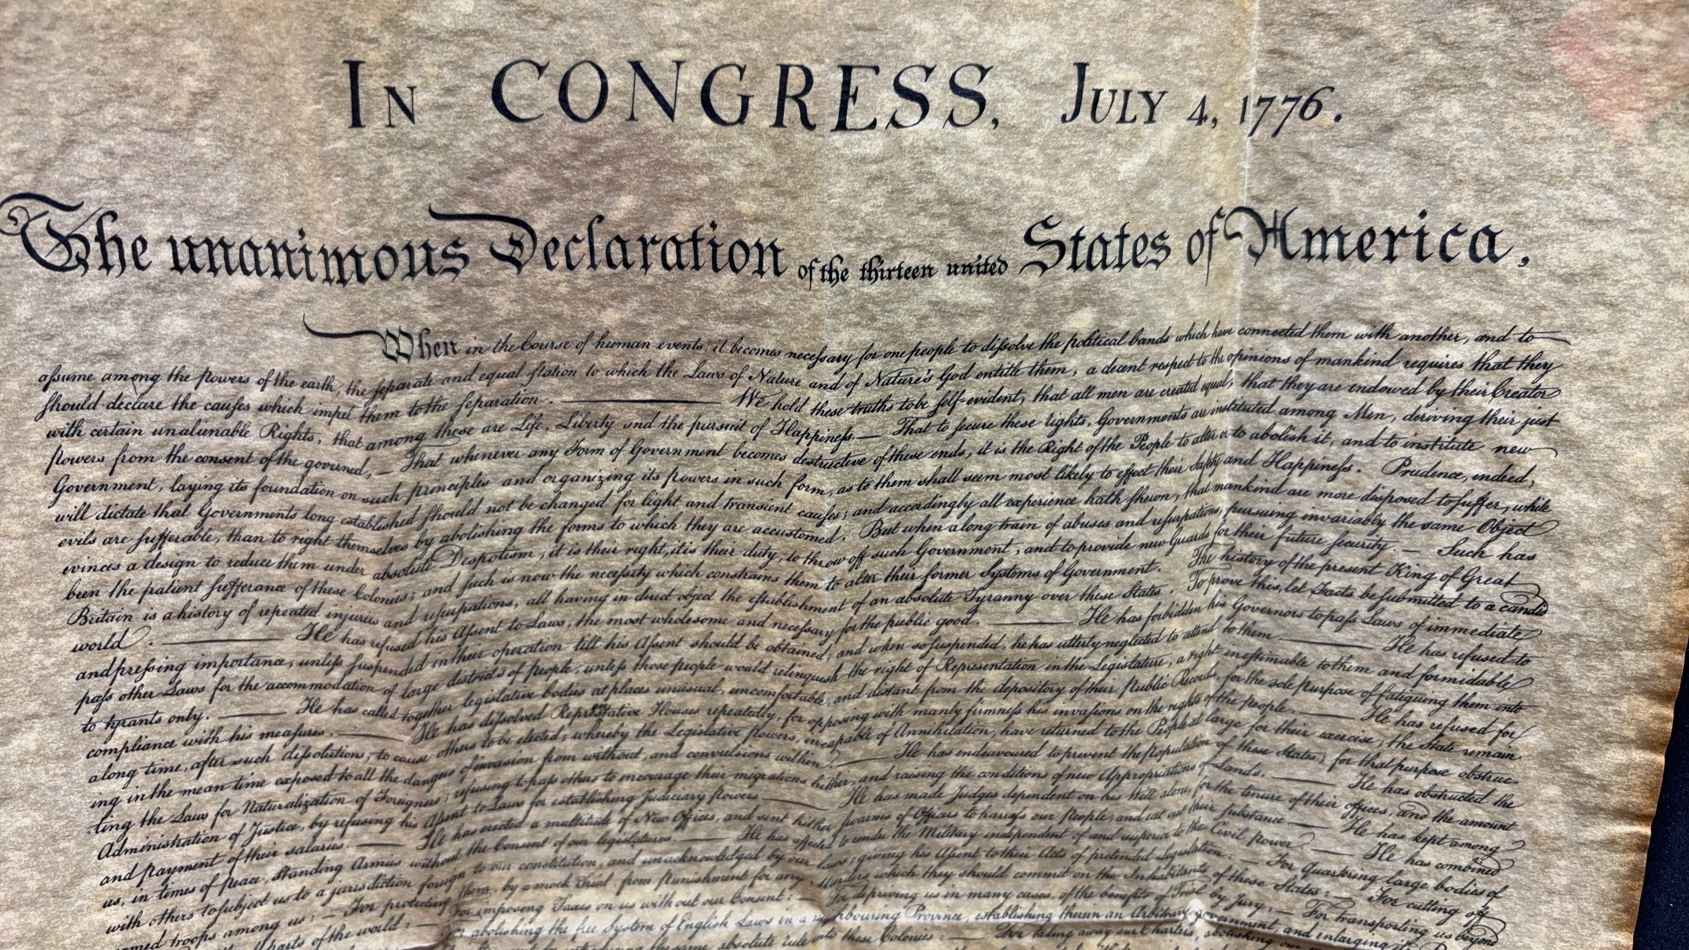 IN CONGRESS, JULY 4, 1776.
The unanimous Declaration of the thirteen united States of America,
When in the Course of human events, it becomes necessary for one people to dissolve the political bands which have connected them with another, and to
assume among the powers of the earth, the separate and equal station to which the Laws of Nature and of Nature's God entitle them, a decent respect to the opinions of mankind requires that they
should declare the causes which impel them to the separation. — We hold these truths to be self-evident, that all men are created equal, that they are endowed by their Creator
with certain unalienable Rights, that among these are Life, Liberty and the pursuit of Happiness.— That to secure these rights, Governments are instituted among Men, deriving their just
powers from the consent of the governed, — That whenever any Form of Government becomes destructive of these ends, it is the Right of the People to alter or to abolish it, and to institute new
Government, laying its foundation on such principles and organizing its powers in such form, as to them shall seem most likely to effect their Safety and Happiness. Prudence, indeed,
will dictate that Governments long established should not be changed for light and transient causes; and accordingly all experience hath shewn, that mankind are more disposed to suffer, while
evils are sufferable, than to right themselves by abolishing the forms to which they are accustomed. But when a long train of abuses and usurpations, pursuing invariably the same Object
evinces a design to reduce them under absolute Despotism, it is their right, it is their duty, to throw off such Government, and to provide new Guards for their future security. — Such has
been the patient sufferance of these Colonies; and such is now the necessity which constrains them to alter their former Systems of Government. The history of the present King of Great
Britain is a history of repeated injuries and usurpations, all having in direct object the establishment of an absolute Tyranny over these States. To prove this, let Facts be submitted to a candid
world. — He has refused his Assent to Laws, the most wholesome and necessary for the public good. — He has forbidden his Governors to pass Laws of immediate
and pressing importance, unless suspended in their operation till his Assent should be obtained; and when so suspended, he has utterly neglected to attend to them. — He has refused to
pass other Laws for the accommodation of large districts of people, unless those people would relinquish the right of Representation in the Legislature, a right inestimable to them and formidable
to tyrants only. — He has called together legislative bodies at places unusual, uncomfortable, and distant from the depository of their Public Records, for the sole purpose of fatiguing them into
compliance with his measures. — He has dissolved Representative Houses repeatedly, for opposing with manly firmness his invasions on the rights of the people. — He has refused for
a long time, after such dissolutions, to cause others to be elected; whereby the Legislative powers, incapable of Annihilation, have returned to the People at large for their exercise; the State remain-
ing in the mean time exposed to all the dangers of invasion from without, and convulsions within. — He has endeavoured to prevent the population of these States; for that purpose obstruc-
ting the Laws for Naturalization of Foreigners; refusing to pass others to encourage their migrations hither, and raising the conditions of new Appropriations of Lands. — He has obstructed the
Administration of Justice, by refusing his Assent to Laws for establishing Judiciary powers. — He has made Judges dependent on his Will alone, for the tenure of their offices, and the amount
and payment of their salaries. — He has erected a multitude of New Offices, and sent hither swarms of Officers to harrass our people, and eat out their substance. — He has kept among
us, in times of peace, Standing Armies without the Consent of our legislatures. — He has affected to render the Military independent of and superior to the Civil power. — He has combined
with others to subject us to a jurisdiction foreign to our constitution, and unacknowledged by our laws; giving his Assent to their Acts of pretended Legislation: — For Quartering large bodies of
armed troops among us: — For protecting them, by a mock Trial, from punishment for any Murders which they should commit on the Inhabitants of these States: — For cutting off
parts of the world: — For imposing Taxes on us without our Consent: — For depriving us in many cases, of the benefits of Trial by Jury: — For transporting us beyond
abolishing the free System of English Laws in a neighbouring Province, establishing therein an Arbitrary government, and enlarging
same absolute rule into these Colonies: — For taking away our Charters, abolishing our